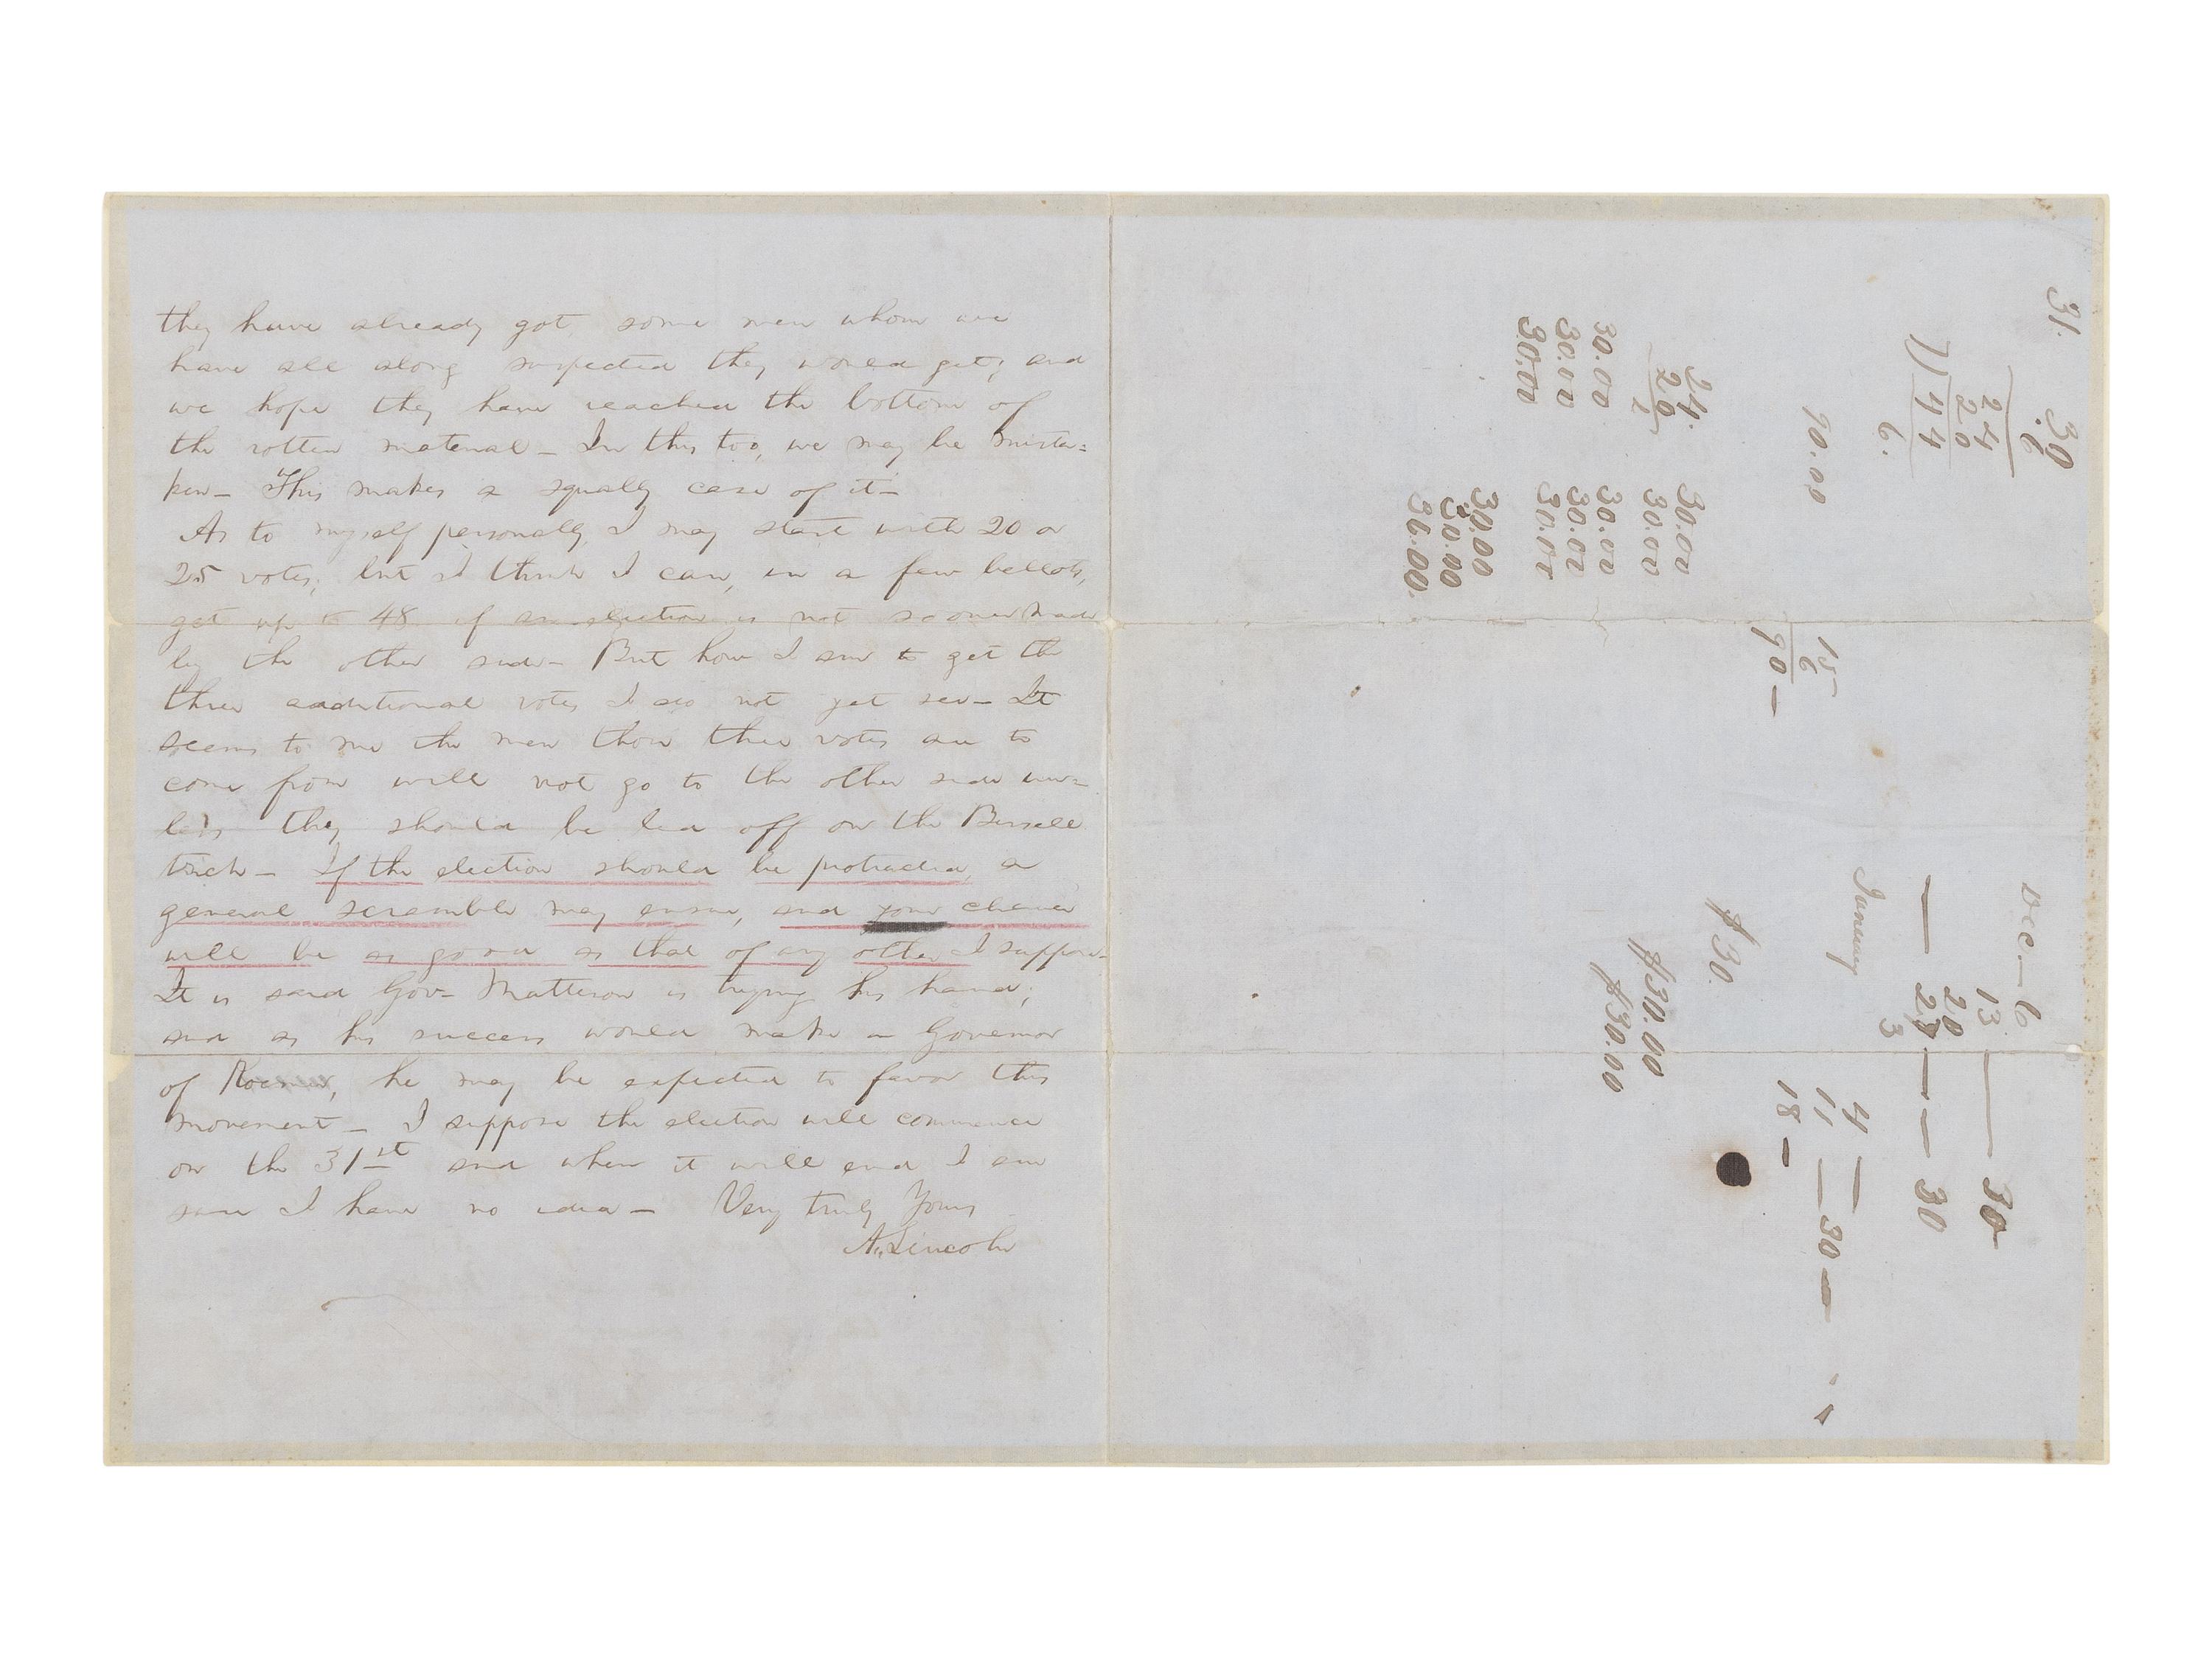 they have already got, some men whom we
have all along suspected they would get; and
we hope they have reached the bottom of
the rotten material – In this too, we may be mista=
ken – This makes a squally case of it –
As to myself personally, I may start with 20 or
25 votes; but I think I can, in a few ballots,
get up to 48 if an election is not sooner made
by the other side – But how I am to get the
three additional votes I do not yet see – It
seems to me the men those three votes are to
come from will not go to the other side un=
less they should be led off on the Bissell
trick – If the election should be protracted, a
general scramble may ensue, and your chance
will be as good as that of any other I suppose
It is said Gov– Matteson is trying his hand;
and as his success would make a Governor
of , he may be expected to favor this
movement – I suppose the election will commence
on the 31st and when it will end I am
sure I have no idea – Very truly Yours
A. Lincoln
31. 30
6
24
20
7)44
6.
90.00
24.
20
30.00
30.00
30.00
30.00
30.00
30.00
30.00
30.00
30.00
30.00
36.00
15
6
90 –
Dec – 6
13 — 30
20
— 27 — — 30
3
January
4 —
11 — 30 –
18 –
$30.
$30.00
$30.00